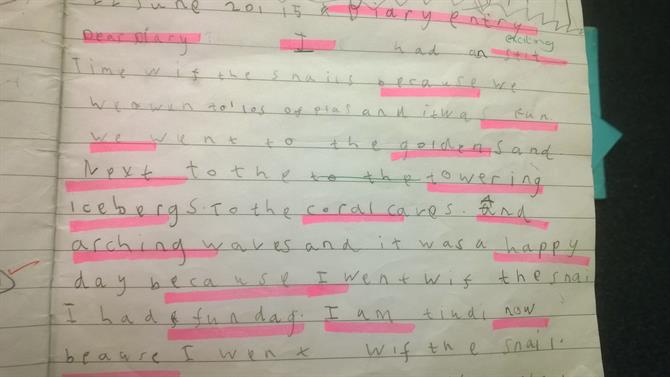 June 2015 Diary entry
Dear Diary I had an exciting
Time wif the snails because we
and it was fun
we went to the golden sand
Next to the to the towering
Icebergs. To the coral caves. And
arching waves and it was a happy
day because I went wif the snai
I had a fun day. I am tiudi now
beause I wen x wif the snail.